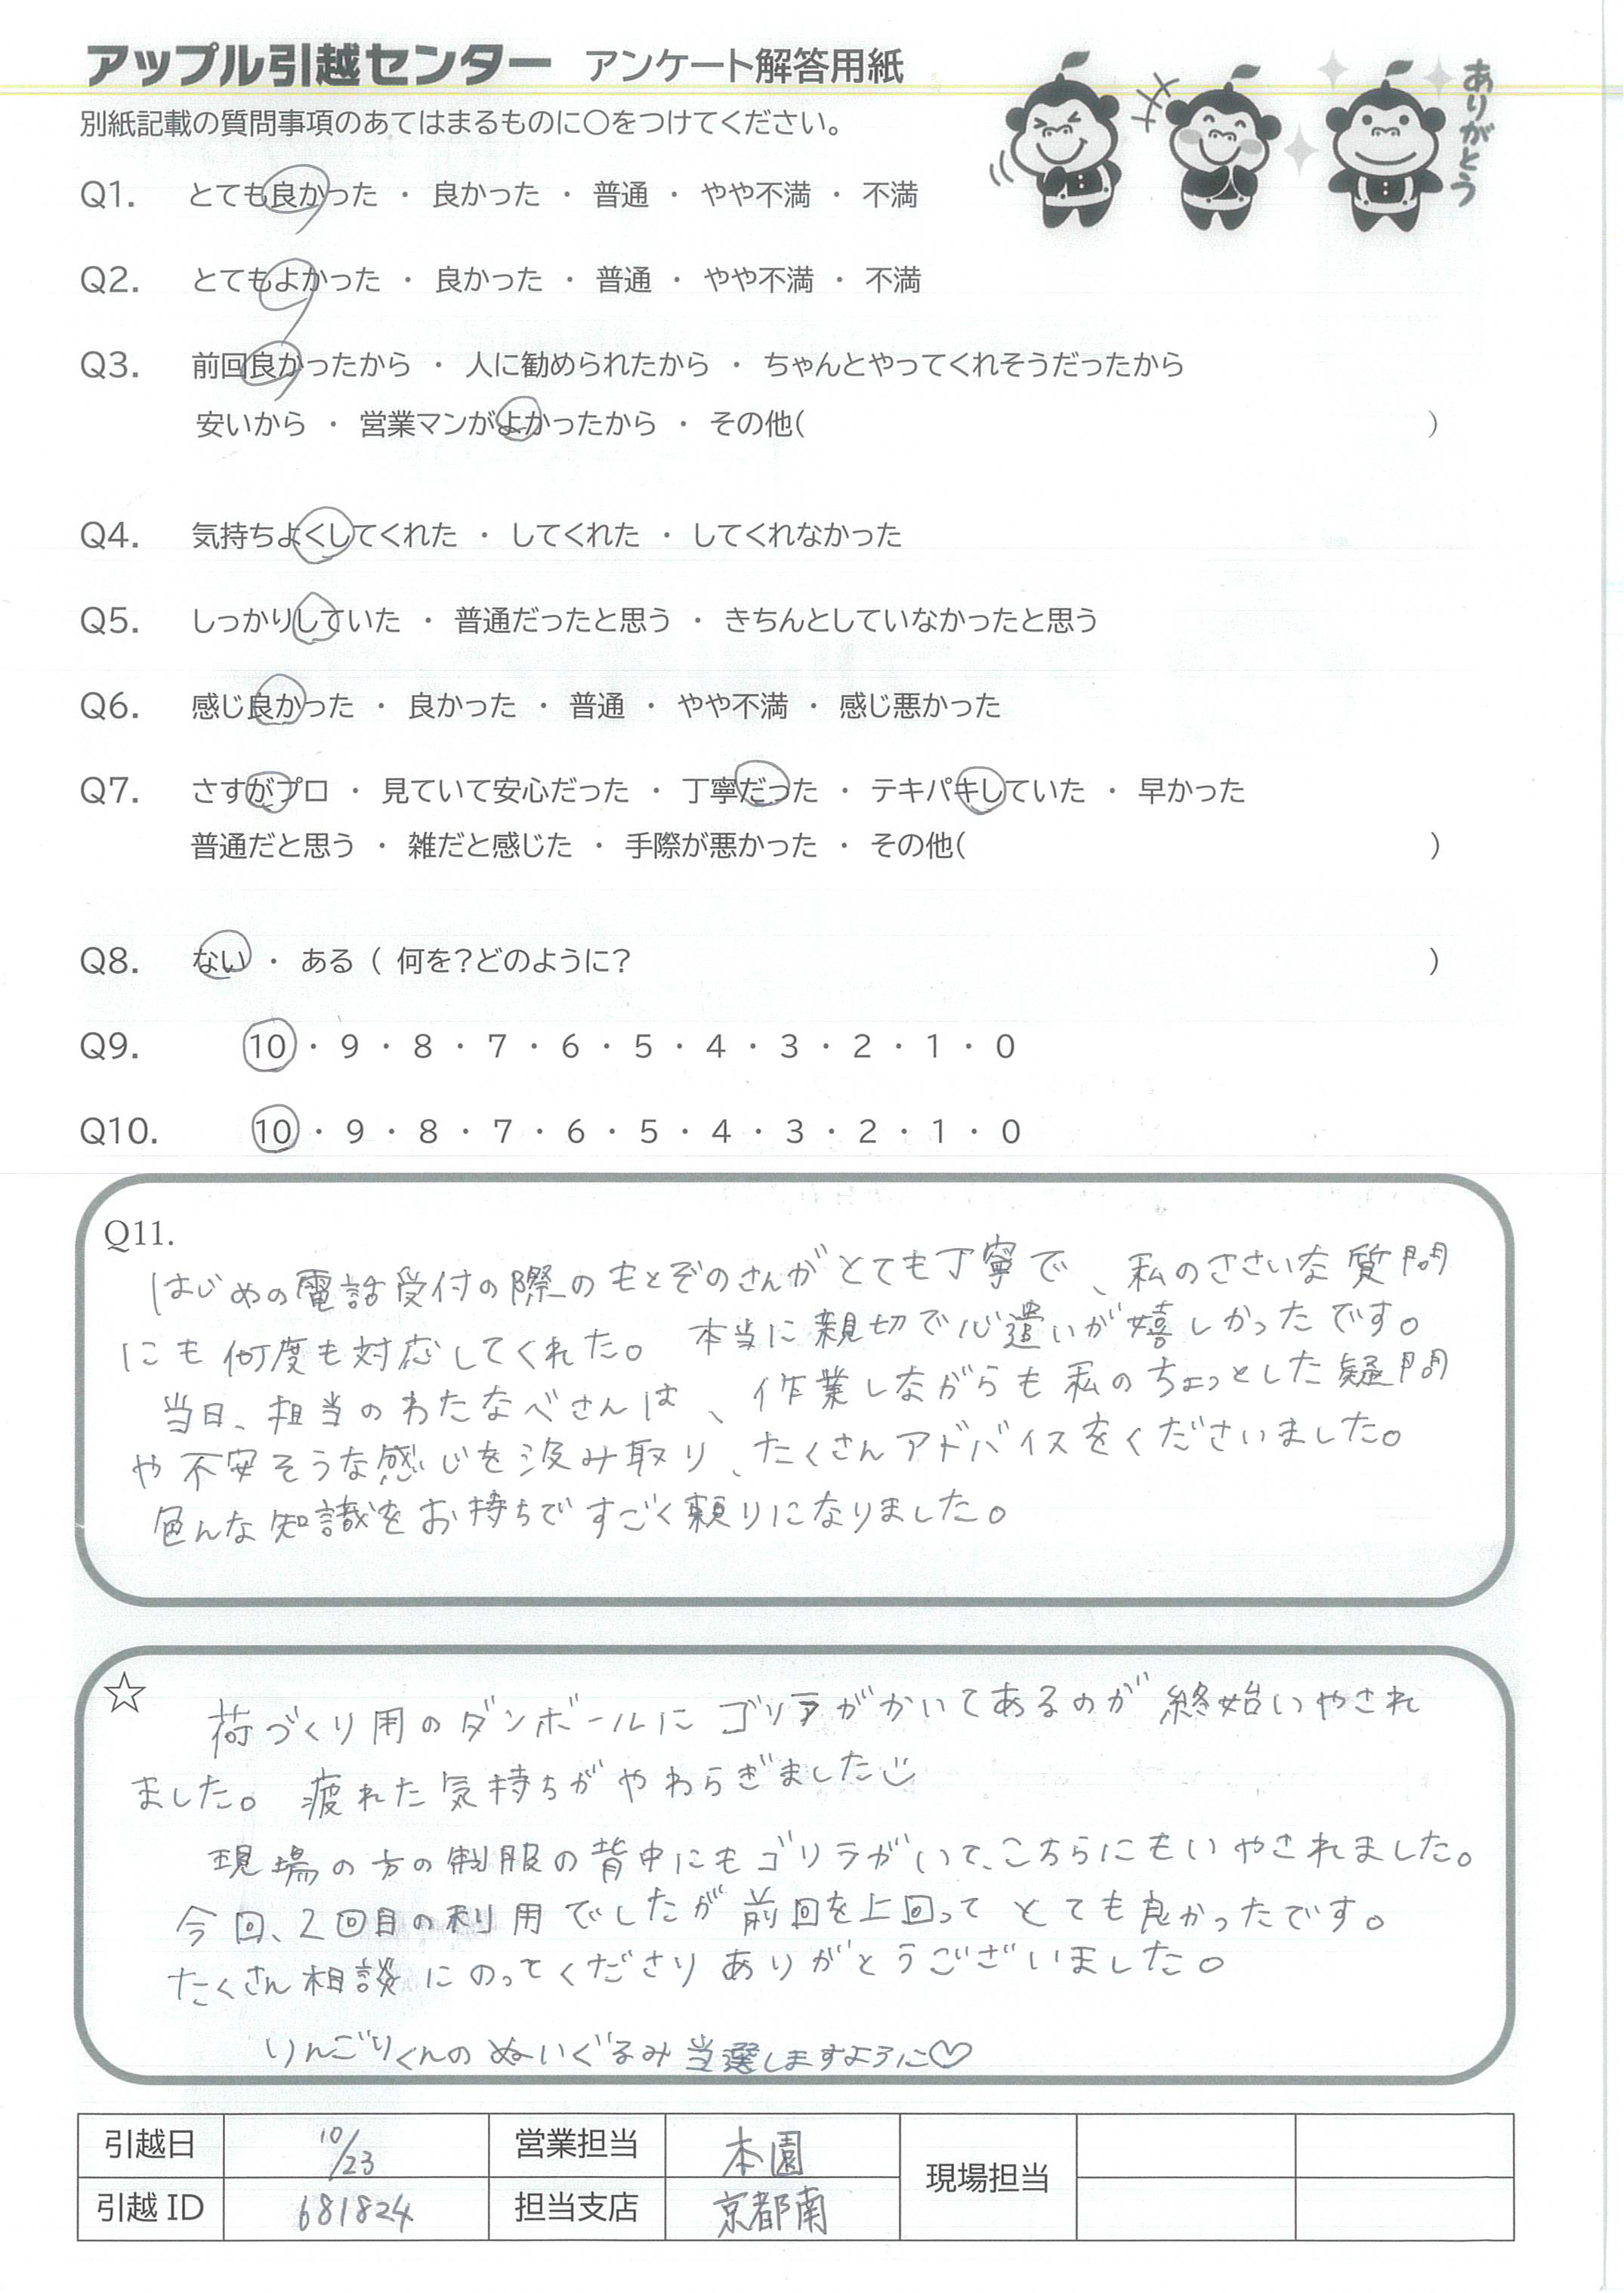 アップル引越センター アンケート解答用紙
ありがとう
別紙記載の質問事項のあてはまるものに○をつけてください。
Q1. とても良かった ・ 良かった ・ 普通 ・ やや不満 ・ 不満
Q2. とてもよかった ・ 良かった ・ 普通 ・ やや不満 ・ 不満
Q3. 前回良かったから ・ 人に勧められたから ・ ちゃんとやってくれそうだったから
安いから ・ 営業マンがよかったから ・ その他( )
Q4. 気持ちよくしてくれた ・ してくれた ・ してくれなかった
Q5. しっかりしていた ・ 普通だったと思う ・ きちんとしていなかったと思う
Q6. 感じ良かった ・ 良かった ・ 普通 ・ やや不満 ・ 感じ悪かった
Q7. さすがプロ ・ 見ていて安心だった ・ 丁寧だった ・ テキパキしていた ・ 早かった
普通だと思う ・ 雑だと感じた ・ 手際が悪かった ・ その他( )
Q8. ない ・ ある ( 何を?どのように? )
Q9. 10 ・ 9 ・ 8 ・ 7 ・ 6 ・ 5 ・ 4 ・ 3 ・ 2 ・ 1 ・ 0
Q10. 10 ・ 9 ・ 8 ・ 7 ・ 6 ・ 5 ・ 4 ・ 3 ・ 2 ・ 1 ・ 0
Q11.
はじめの電話受付の際のもとぞのさんがとても丁寧で、私のささいな質問
にも何度も対応してくれた。 本当に親切で心遣いが嬉しかったです。
当日、担当のわたなべさんは、作業しながらも私のちょっとした疑問
や不安そうな感じを汲み取り、たくさんアドバイスをくださいました。
色んな知識をお持ちですごく頼りになりました。
☆ 荷づくり用のダンボールにゴリラがかいてあるのが終始いやされ
ました。疲れた気持ちがやわらぎました
現場の方の制服の背中にもゴリラがいて、こちらにもいやされました。
今回、2回目の利用でしたが前回を上回ってとても良かったです。
たくさん相談にのってくださりありがとうございました。
りんごりくんのぬいぐるみ当選しますように♡
引越日 10/23 営業担当 本園 現場担当
引越ID 681824 担当支店 京都南